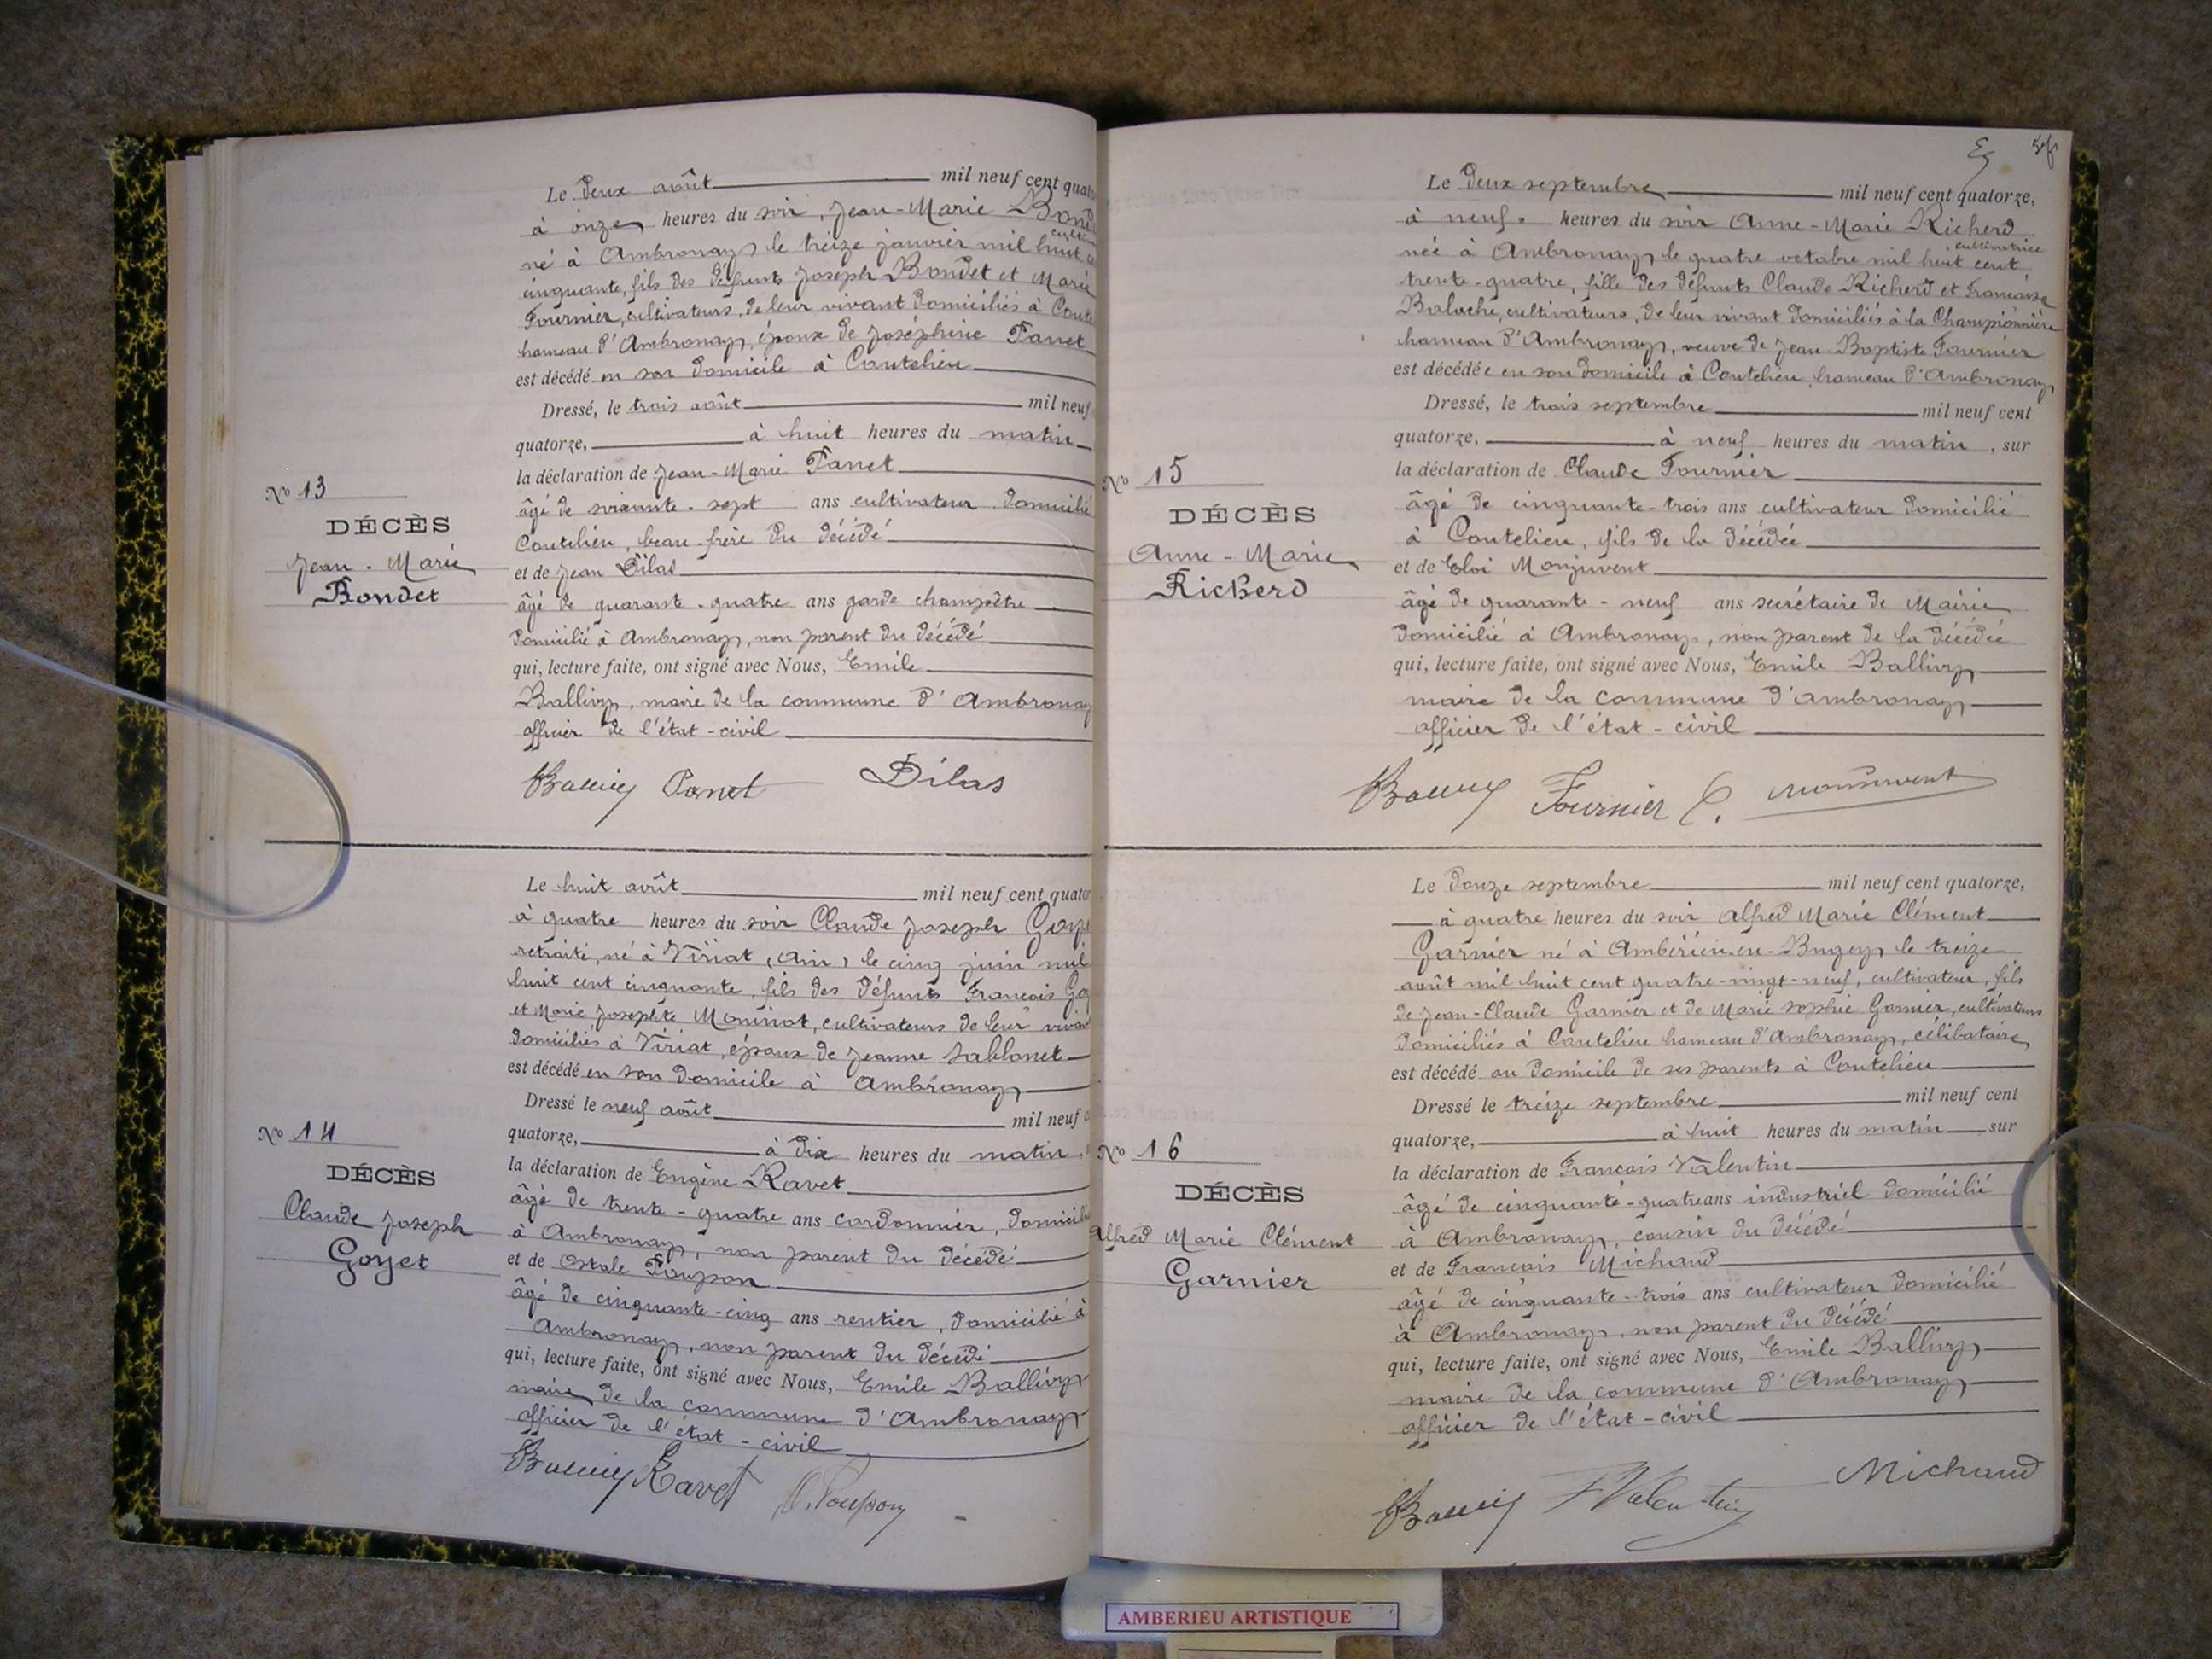 Le deux août mil neuf cent
à onze heures du soir, Jean-Marie
né à Ambronay le treize janvier mil huit
cinquante, fils des défunts Joseph Bondet et Marie
Fournier, cultivateurs, de leur vivant domiciliés à
hameau d'Ambronay, époux de Joséphine Panet
est décédé en son domicile à Coutelieu
Dressé, le trois août mil neuf
quatorze, à huit heures du matin
la déclaration de Jean-Marie Panet
âgé de soixante-sept ans cultivateur domicilié
Coutelieu, beau-frère du décédé
et de Jean Dilas
âgé de quarante-quatre ans garde champêtre
domicilié à Ambronay, non parent du décédé
qui, lecture faite, ont signé avec Nous, Emile
Ballivy, maire de la commune d'Ambronay
officier de l'état-civil
Panet Dilas
No 13
DÉCÈS
Jean-Marie
Bondet
Le huit août mil neuf cent
à quatre heures du soir Claude Joseph
retraité, né à Viriat (Ain) le cinq juin mil
huit cent cinquante, fils des défunts François
et Marie Josephte Moninot, cultivateurs de leur vivant
domiciliés à Viriat, époux de Jeanne Sablonet
est décédé en son domicile à Ambronay
Dressé le neuf août mil neuf
quatorze, à dix heures du matin,
la déclaration de Eugène Ravet
âgé de trente-quatre ans cordonnier, domicilié
à Ambronay, non parent du décédé
et de Poupon
âgé de cinquante-cinq ans rentier, domicilié à
Ambronay, non parent du décédé
qui, lecture faite, ont signé avec Nous, Emile Ballivy
maire de la commune d'Ambronay
officier de l'état-civil
Ravet Poupon
No 14
DÉCÈS
Claude Joseph
Goyet
Le deux septembre mil neuf cent quatorze,
à neuf heures du soir Anne-Marie Richerd
, cultivatrice
née à Ambronay le quatre octobre mil huit cent
trente-quatre, fille des défunts Claude Richerd et Francoise
cultivateurs, de leur vivant domiciliés à la Championnière
hameau d'Ambronay, veuve de Jean Baptiste Fournier
est décédée en son domicile à Coutelieu hameau d'Ambronay
Dressé, le trois septembre mil neuf cent
quatorze, à neuf heures du matin, sur
la déclaration de Claude Fournier
âgé de cinquante-trois ans cultivateur domicilié
à Coutelieu, fils de la décédée
et de Eloi Monjuvent
âgé de quarante-neuf ans secrétaire de Mairie
domicilié à Ambronay, non parent de la décédée
qui, lecture faite, ont signé avec Nous, Emile Ballivy
maire de la commune d'Ambronay
officier de l'état-civil
Fournier C. Monjuvent
No 15
DÉCÈS
Anne-Marie
Richerd
Le douze septembre mil neuf cent quatorze,
à quatre heures du soir Alfred Marie Clément
Garnier né à Ambérieu-en-Bugey le treize
août mil huit cent quatre-vingt-neuf, cultivateur, fils
de Jean-Claude Garnier et de Marie Sophie Garnier, cultivateurs
domiciliés à Coutelieu hameau d'Ambronay, célibataire
est décédé au domicile de ses parents à Coutelieu
Dressé le treize septembre mil neuf cent
quatorze, à huit heures du matin sur
la déclaration de François Valentin
âgé de cinquante-quatre ans industriel domicilié
à Ambronay, cousin du décédé
et de François Michaud
âgé de cinquante-trois ans cultivateur domicilié
à Ambronay, non parent du décédé
qui, lecture faite, ont signé avec Nous, Emile Ballivy
maire de la commune d'Ambronay
officier de l'état-civil
F Valentin Michaud
No 16
DÉCÈS
Alfred Marie Clément
Garnier
AMBERIEU ARTISTIQUE